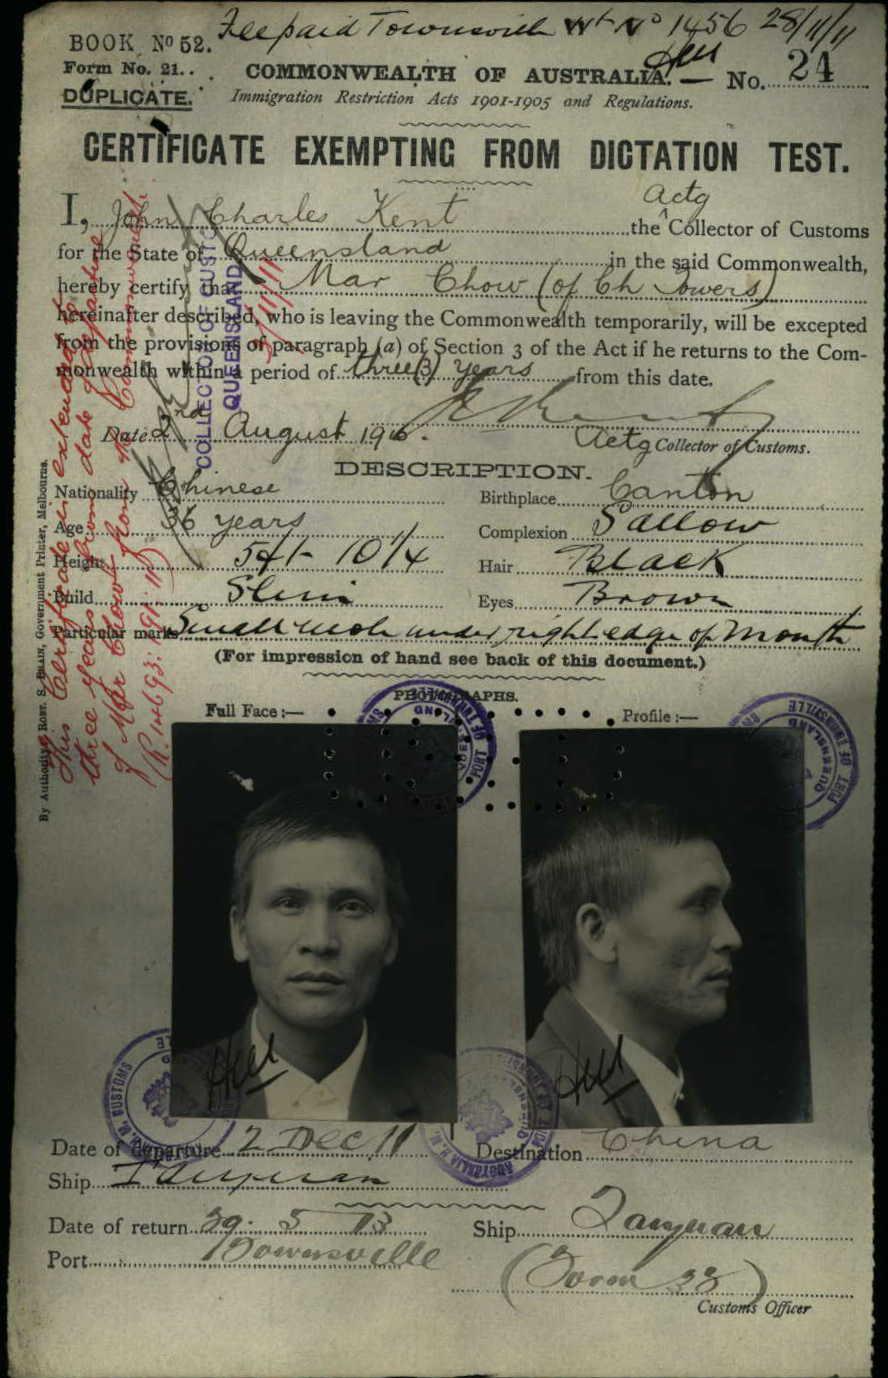 Fee paid Townsville Wt No 1456 28/11/11
BOOK No 52.
Form No. 21.
DUPLICATE.
COMMONWEALTH OF AUSTRALIA.
No. 24
Immigration Restriction Acts 1901-1905 and Regulations.
CERTIFICATE EXEMPTING FROM DICTATION TEST.
I, John Charles Kent the Actg Collector of Customs
for the State of Queensland in the said Commonwealth,
hereby certify that Mar Chow (of Ch Towers)
hereinafter described, who is leaving the Commonwealth temporarily, will be excepted
from the provisions of paragraph (a) of Section 3 of the Act if he returns to the Com-
monwealth within a period of three (3) years from this date.
Date 23rd August 19
Actg Collector of Customs.
COLLECTOR OF CUSTOMS
QUEENSLAND
This Certificate is extended to
three years from date of departure
of Mar Chow from the Commonwealth
DESCRIPTION.
Nationality Chinese
Birthplace Canton
Age 36 years
Complexion Sallow
Height 5ft 10 1/4
Hair Black
Build Slim
Eyes Brown
Particular marks Small mole under right edge of mouth
(For impression of hand see back of this document.)
PHOTOGRAPHS.
Full Face:—
Profile:—
By Authority: ROBT. S. BRAIN, Government Printer, Melbourne.
Date of departure 2 Dec 11
Destination China
Ship Taiyuan
Date of return 29. 5 13
Ship Taiyuan
Port Townsville
(Form 32)
Customs Officer